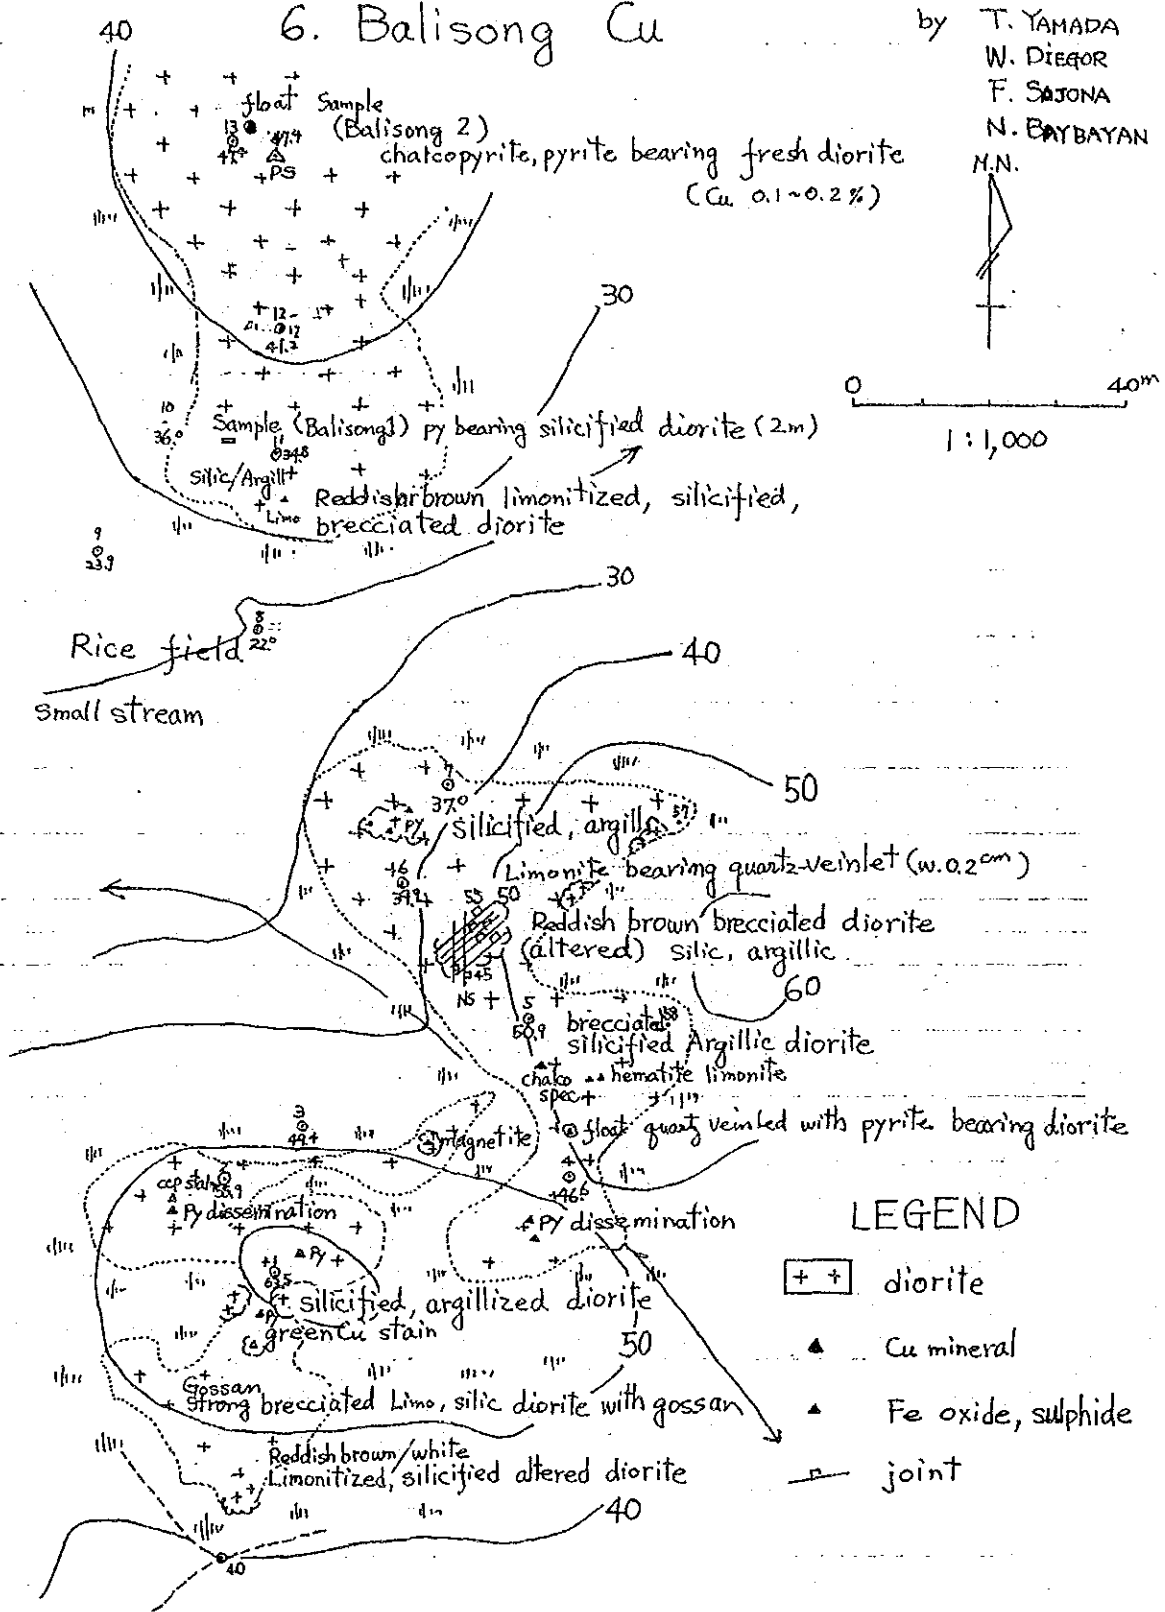 6. Balisong Cu
by T. YAMADA
W. DIEGOR
F. SAJONA
N. BAYBAYAN
M.N.
40
float Sample
(Balisong 2)
13
47.4
PS
chalcopyrite, pyrite bearing fresh diorite
(Cu 0.1~0.2%)
30
12
41.2
0 40m
1:1,000
10
36.0
Sample (Balisong1) py bearing silicified diorite (2m)
11
34.8
Silic/Argill
Limo
Reddish brown limonitized, silicified,
brecciated diorite
9
23.9
30
8
22.0
Rice field
Small stream
40
50
7
37.0
py
silicified, argill
57
Limonite bearing quartz-veinlet (w. 0.2cm)
6
39.2
55 50
Reddish brown brecciated diorite
(altered) silic, argillic
60
NS
5
50.9
brecciated
silicified Argillic diorite
chalco
spec
hematite limonite
3
49.4
magnetite
float quartz veinled with pyrite bearing diorite
55.9
46.6
Py dissemination
Py dissemination
Py
63.5
py
silicified, argillized diorite
green Cu stain
50
Gossan
Strong brecciated Limo, silic diorite with gossan
Reddish brown/white
Limonitized, silicified altered diorite
40
40
LEGEND
+ + diorite
Cu mineral
Fe oxide, sulphide
joint